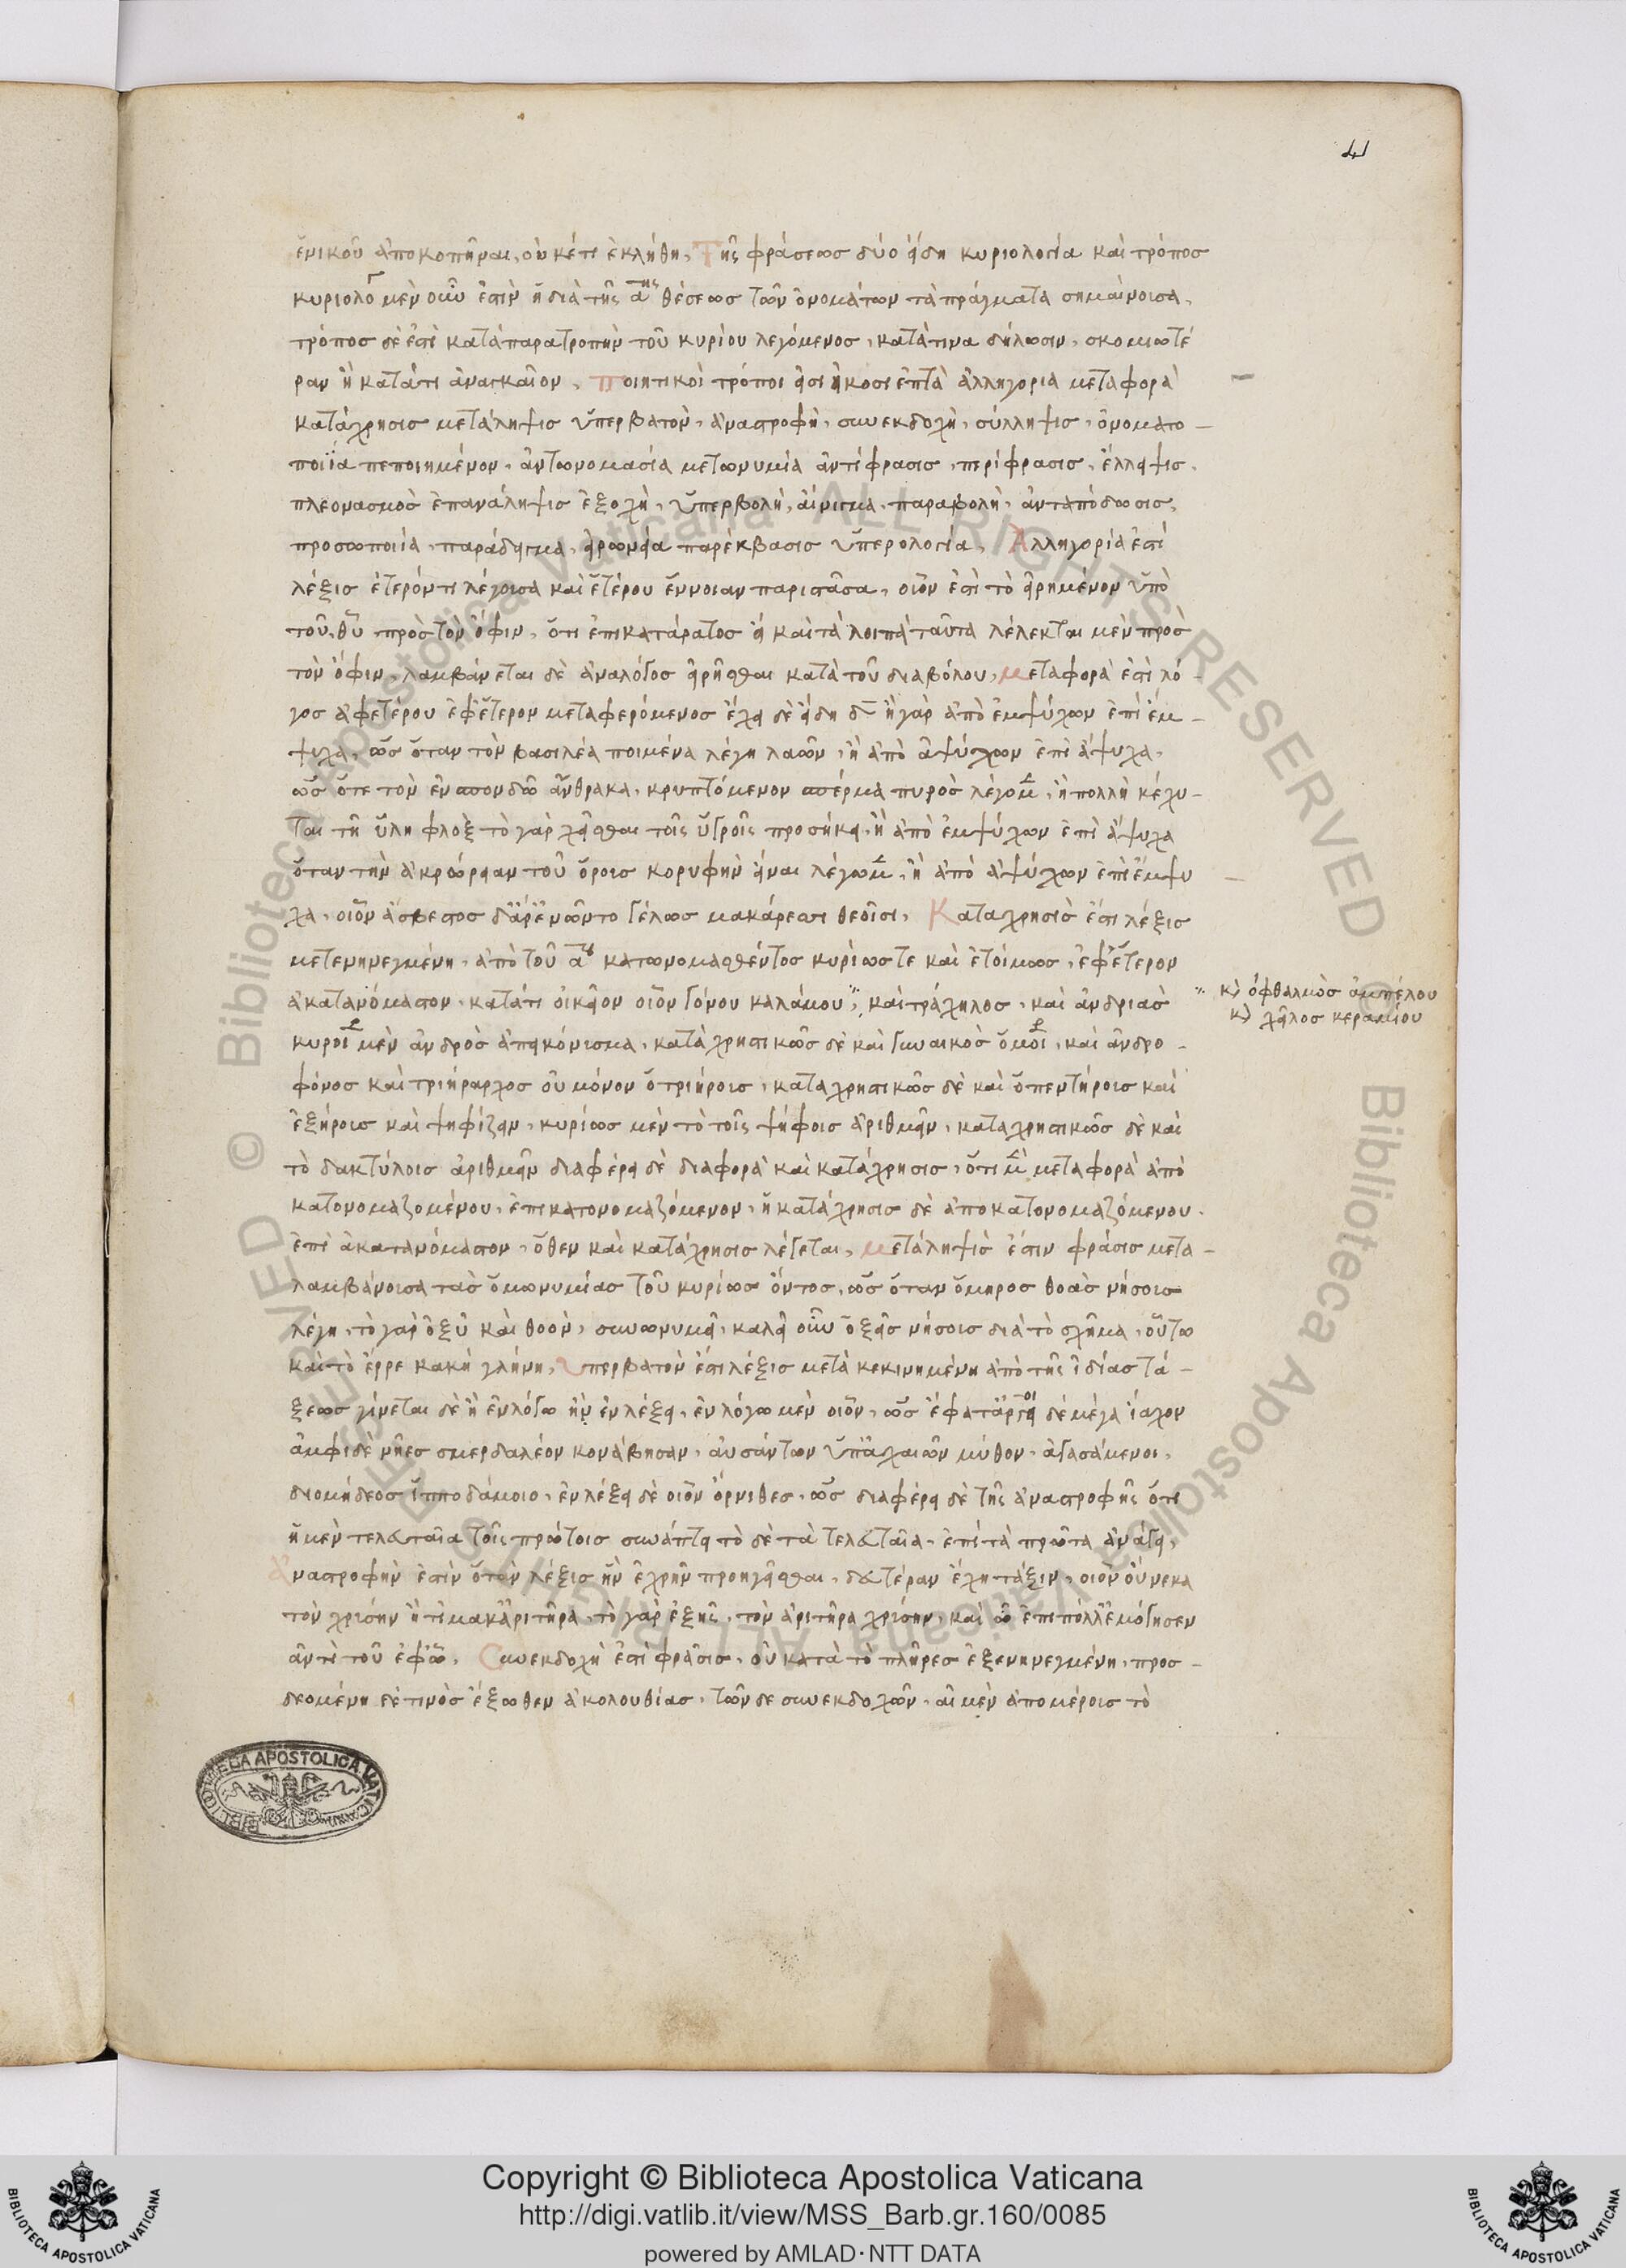 41
ἑνικοῦ ἀποκοπῆναι, οὐκέτι ἐκλήθη. Τῆς φράσεως δύο εἴδη κυριολογία καὶ τρόπος
κυριολογ μὲν οὖν ἐστὶν ἡ διὰ τῆς α<sup>της</sup> θέσεως τῶν ὀνομάτων τὰ πράγματα σημαίνουσα,
τρόπος δὲ ἐστὶ κατὰ παρατροπὴν τοῦ κυρίου λεγόμενος, κατά τινα δήλωσιν, σκομιωτέ
ραν ἢ κατά τι ἀναγκαῖον. ποιητικοὶ τρόποι εἰσι εἴκοσι ἑπτὰ ἀλληγορία μεταφορὰ
κατάχρησις μετάληψις ὑπερβατὸν, ἀναστροφὴ, συνεκδοχὴ, σύλληψις, ὀνοματο-
ποιΐα πεποιημένον, ἀντωνομασία μετωνυμία ἀντίφρασις, περίφρασις, ἔλλειψις,
πλεονασμὸς ἐπανάληψις ἐξοχὴ, ὑπερβολὴ, αἴνιγμα, παραβολὴ, ἀνταπόδωσις,
προσωποιία, παράδειγμα, εἰρωνεία παρέκβασις ὑπερολογία. Ἀλληγορία ἐστὶ
λέξις ἑτερόν τι λέγουσα καὶ ἑτέρου ἔννοιαν παριστᾶσα, οἷον ἐστὶ τὸ εἰρημένον ὑπὸ
τοῦ θυ πρὸς τὸν ὄφιν, ὅτι ἐπικατάρατος εἶ καὶ τὰ λοιπὰ ταῦτα λέλεκται μὲν πρὸς
τὸν ὄφιν, λαμβάνεται δὲ ἀναλόγος εἰρῆσθαι κατὰ τοῦ διαβόλου, μεταφορὰ ἐστὶ λό-
γος ἀφετέρου ἐφέτερον μεταφερόμενος ἔχει δὲ εἴδη δ ἢ γὰρ ἀπὸ ἐμψύχων ἐπὶ ἔμ-
ψυχα, ὡς ὅταν τὸν βασιλέα ποιμένα λέγη λαῶν, ἢ ἀπὸ ἀψύχων ἐπὶ ἄψυχα,
ὡς ὅτε τὸν ἐν σπονδῶ ἄνθρακα, κρυπτόμενον σπέρμα πυρὸς λέγομ, ἢ πολλὴ κέχυ-
ται τῆ ὕλη φλὸξ τὸ γὰρ χεῖσθαι τοῖς ὑγροῖς προσήκει, ἢ ἀπὸ ἐμψύχων ἐπὶ ἄψυχα
ὅταν τὴν ἀκρώρειαν τοῦ ὄρους κορυφὴν εἶναι λέγωμ, ἢ ἀπὸ ἀψύχων ἐπὶ ἔμψυ
χα, οἷον ἄσβεστος δἄρἐνῶντο γέλως μακάρεσσι θεοῖσι. Καταχρησὶς ἐστι λέξις
μετενηνεγμένη, ἀπὸ τοῦ α<sup>ου</sup> κατωνομασθέντος κυρίως τε καὶ ἑτοίμως, ἐφἕτερον
ἀκατανόμαστον, κατά τι οἰκεῖον οἷον γόνυ καλάμου, καὶ τράχηλος, καὶ ἀνδριὰς
κ) ὀφθαλμὸς ἀμπέλου
κ) χεῖλος κεραμίου
κυροι μὲν ἀνδρὸς ἀπεικόνισμα, καταχρηστικῶς δὲ καὶ γυναικὸς ὁμοι, καὶ ἀνδρο-
φόνος καὶ τριήραρχος οὐ μόνον ὁ τριήρους, καταχρηστικῶς δὲ καὶ ὁ πεντήρους καὶ
ἑξήρους καὶ ψηφίζειν, κυρίως μὲν τὸ τοῖς ψήφοις ἀριθμεῖν, καταχρηστικῶς δὲ καὶ
τὸ δακτύλοις ἀριθμεῖν διαφέρει δὲ διαφορὰ καὶ κατάχρησις, ὅτι μ μεταφορὰ ἀπὸ
κατονομαζομένου, ἐπικατονομαζόμενον, ἡ κατάχρησις δὲ ἀποκατονομαζόμενου,
ἐπὶ ἀκατανόμαστον, ὅθεν καὶ κατάχρησις λέγεται, μετάληψὶς ἐστιν φράσις μετα-
λαμβάνουσα τὰς ὁμωνυμίας τοῦ κυρίως ὄντος, ὡς ὅταν ὅμηρος θοὰς νήσους
λέγη, τὸ γὰρ ὀξὺ καὶ θοὸν, συνωνυμεῖ, καλεῖ οὖν ὀξεῖς νήσους διὰ τὸ σχῆμα, οὕτω
καὶ τὸ ἔρρε κακὴ γλήνη, Ὑπερβατὸν ἐστι λέξις μετὰ κεκινημένη ἀπὸ τῆς ἰδίας τά-
ξεως γίνεται δὲ ἢ ἐν λόγω ἢ ἐν λέξει, ἐν λόγω μὲν οἷον, ὡς ἔφατ ἀργεῖοι δὲ μέγα ἴαχον
ἀμφὶ δὲ νῆες σμερδαλέον κονάβησαν, ἀυσάντων ὑπἀχαιῶν μύθον, ἀγασάμενοι,
διομήδεος ἱπποδάμοιο, ἐν λέξει δὲ οἷον ὄρνιθες, ὡς διαφέρει δὲ τῆς ἀναστροφῆς ὅτι
ἡ μὲν τελευταῖα τοῖς πρώτοις συνάπτει τὸ δὲ τὰ τελευταῖα, ἐπὶ τὰ πρῶτα ἀνάγει,
Ἀναστροφὴν ἐστὶν ὅταν λέξις ἣν ἐχρῆν προηγεῖσθαι, δευτέραν ἔχη τάξιν, οἷον οὕνεκα
τὸν χρύσην ἠτίμακἀριτῆρα, τὸ γὰρ ἑξῆς, τὸν ἀριτῆρα χρύσην, καὶ ὧ ἐπιπόλλ᾽ἐμόγησεν
ἀντὶ τοῦ ἐφ᾽ὧ. Συνεκδοχὴ ἐστὶ φράσις, οὐ κατὰ τὸ πλῆρες ἐξενηνεγμένη, προσ-
δεομένη δὲ τινὸς ἔξωθεν ἀκολουθίας, τῶν δε συνεκδοχῶν, αἱ μὲν ἀπομέρους τὸ
BIBLIOTECA APOSTOLICA VATICANA
Copyright © Biblioteca Apostolica Vaticana
http://digi.vatlib.it/view/MSS_Barb.gr.160/0085
powered by AMLAD·NTT DATA